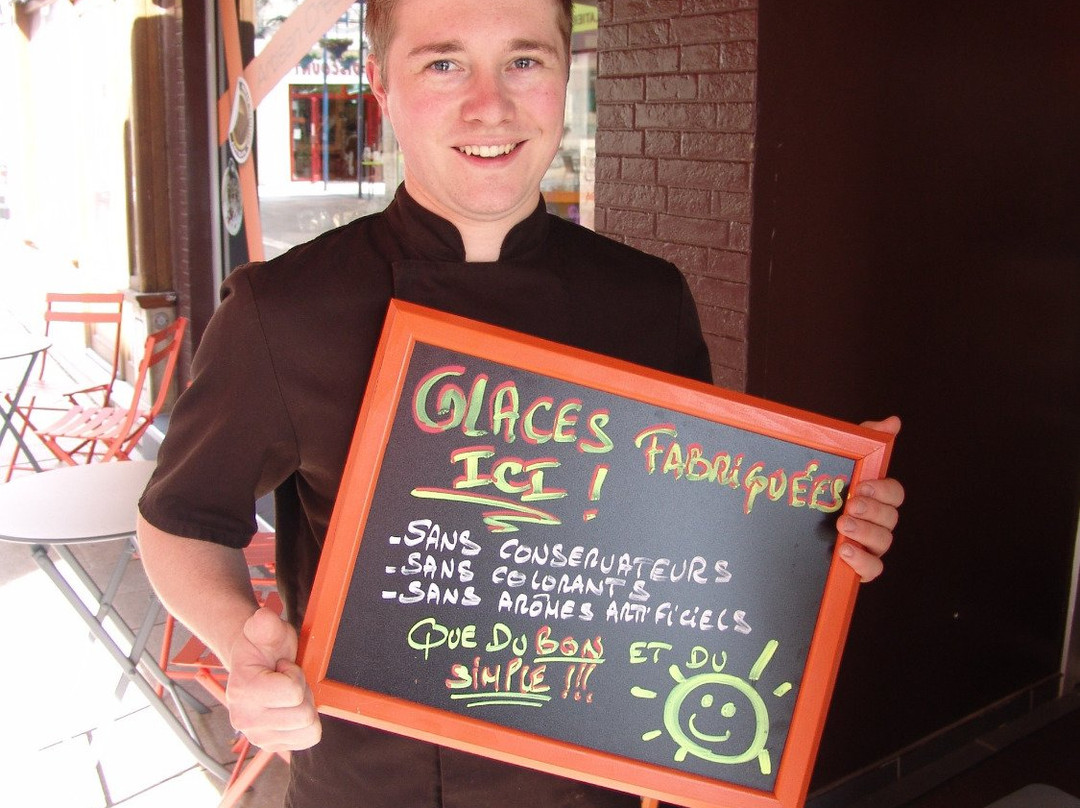 GLACES FABRIQUÉES
ICI !
-SANS CONSERVATEURS
-SANS COLORANTS
-SANS ARÔMES ARTIFICIELS
QUE DU BON ET DU
SIMPLE !!!